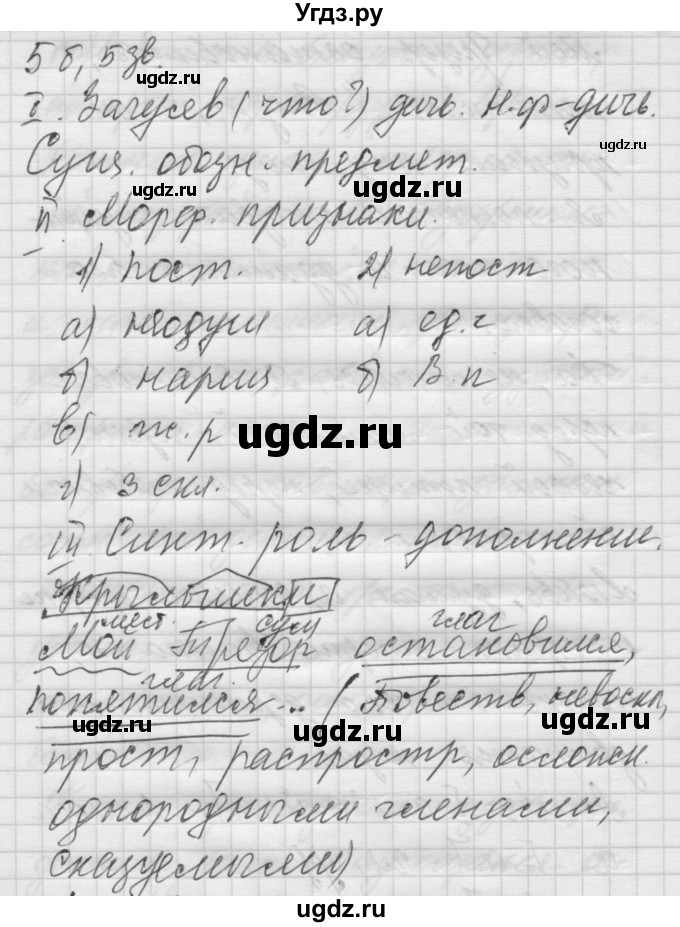 Угдз.ру
5 б, 5 зв.
ugdz.ru
I. Загуляев (что?) дичь. Н.ф-дичь.
Сущ. обозн. предмет.
ugdz.ru
ugdz.ru
II Морф. признаки.
1) пост. 2) непост
а) неодуш а) ед.ч
б) нариц б) В.п
в) ж.р
ugdz.ru
ugdz.ru
г) 3 скл.
III. Синт. роль - дополнение.
Крылышки
мест. сущ глаг
Мой Трезор остановился,
глаг.
попятился... (Повеств, невоскл,
ugdz.ru
ugdz.ru
ugdz.ru
прост, распростр, осложн.
однородными членами,
сказуемыми)
ugdz.ru
ugdz.ru